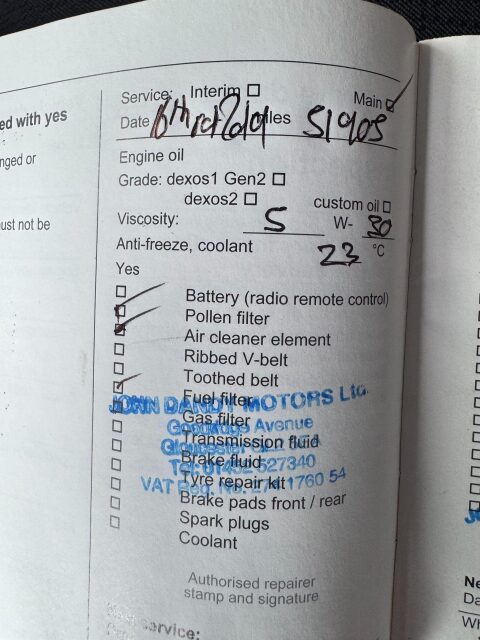 ed with yes
nged or
ust not be
Service: Interim ☐ Main ☑
Date 6th miles 51905
Engine oil
Grade: dexos1 Gen2 ☐
dexos2 ☐ custom oil ☐
Viscosity: 5 W- 30
Anti-freeze, coolant 23 °C
Yes
Battery (radio remote control)
Pollen filter
Air cleaner element
Ribbed V-belt
Toothed belt
Fuel filter
JOHN DANDY MOTORS Ltd.
Gas filter
Avenue
Transmission fluid
Gloucester
Brake fluid
Tel: 01452 527340
Tyre repair kit
VAT Reg. No. 274 1760 54
Brake pads front / rear
Spark plugs
Coolant
Authorised repairer
stamp and signature
service:
Ne
Da
Wh